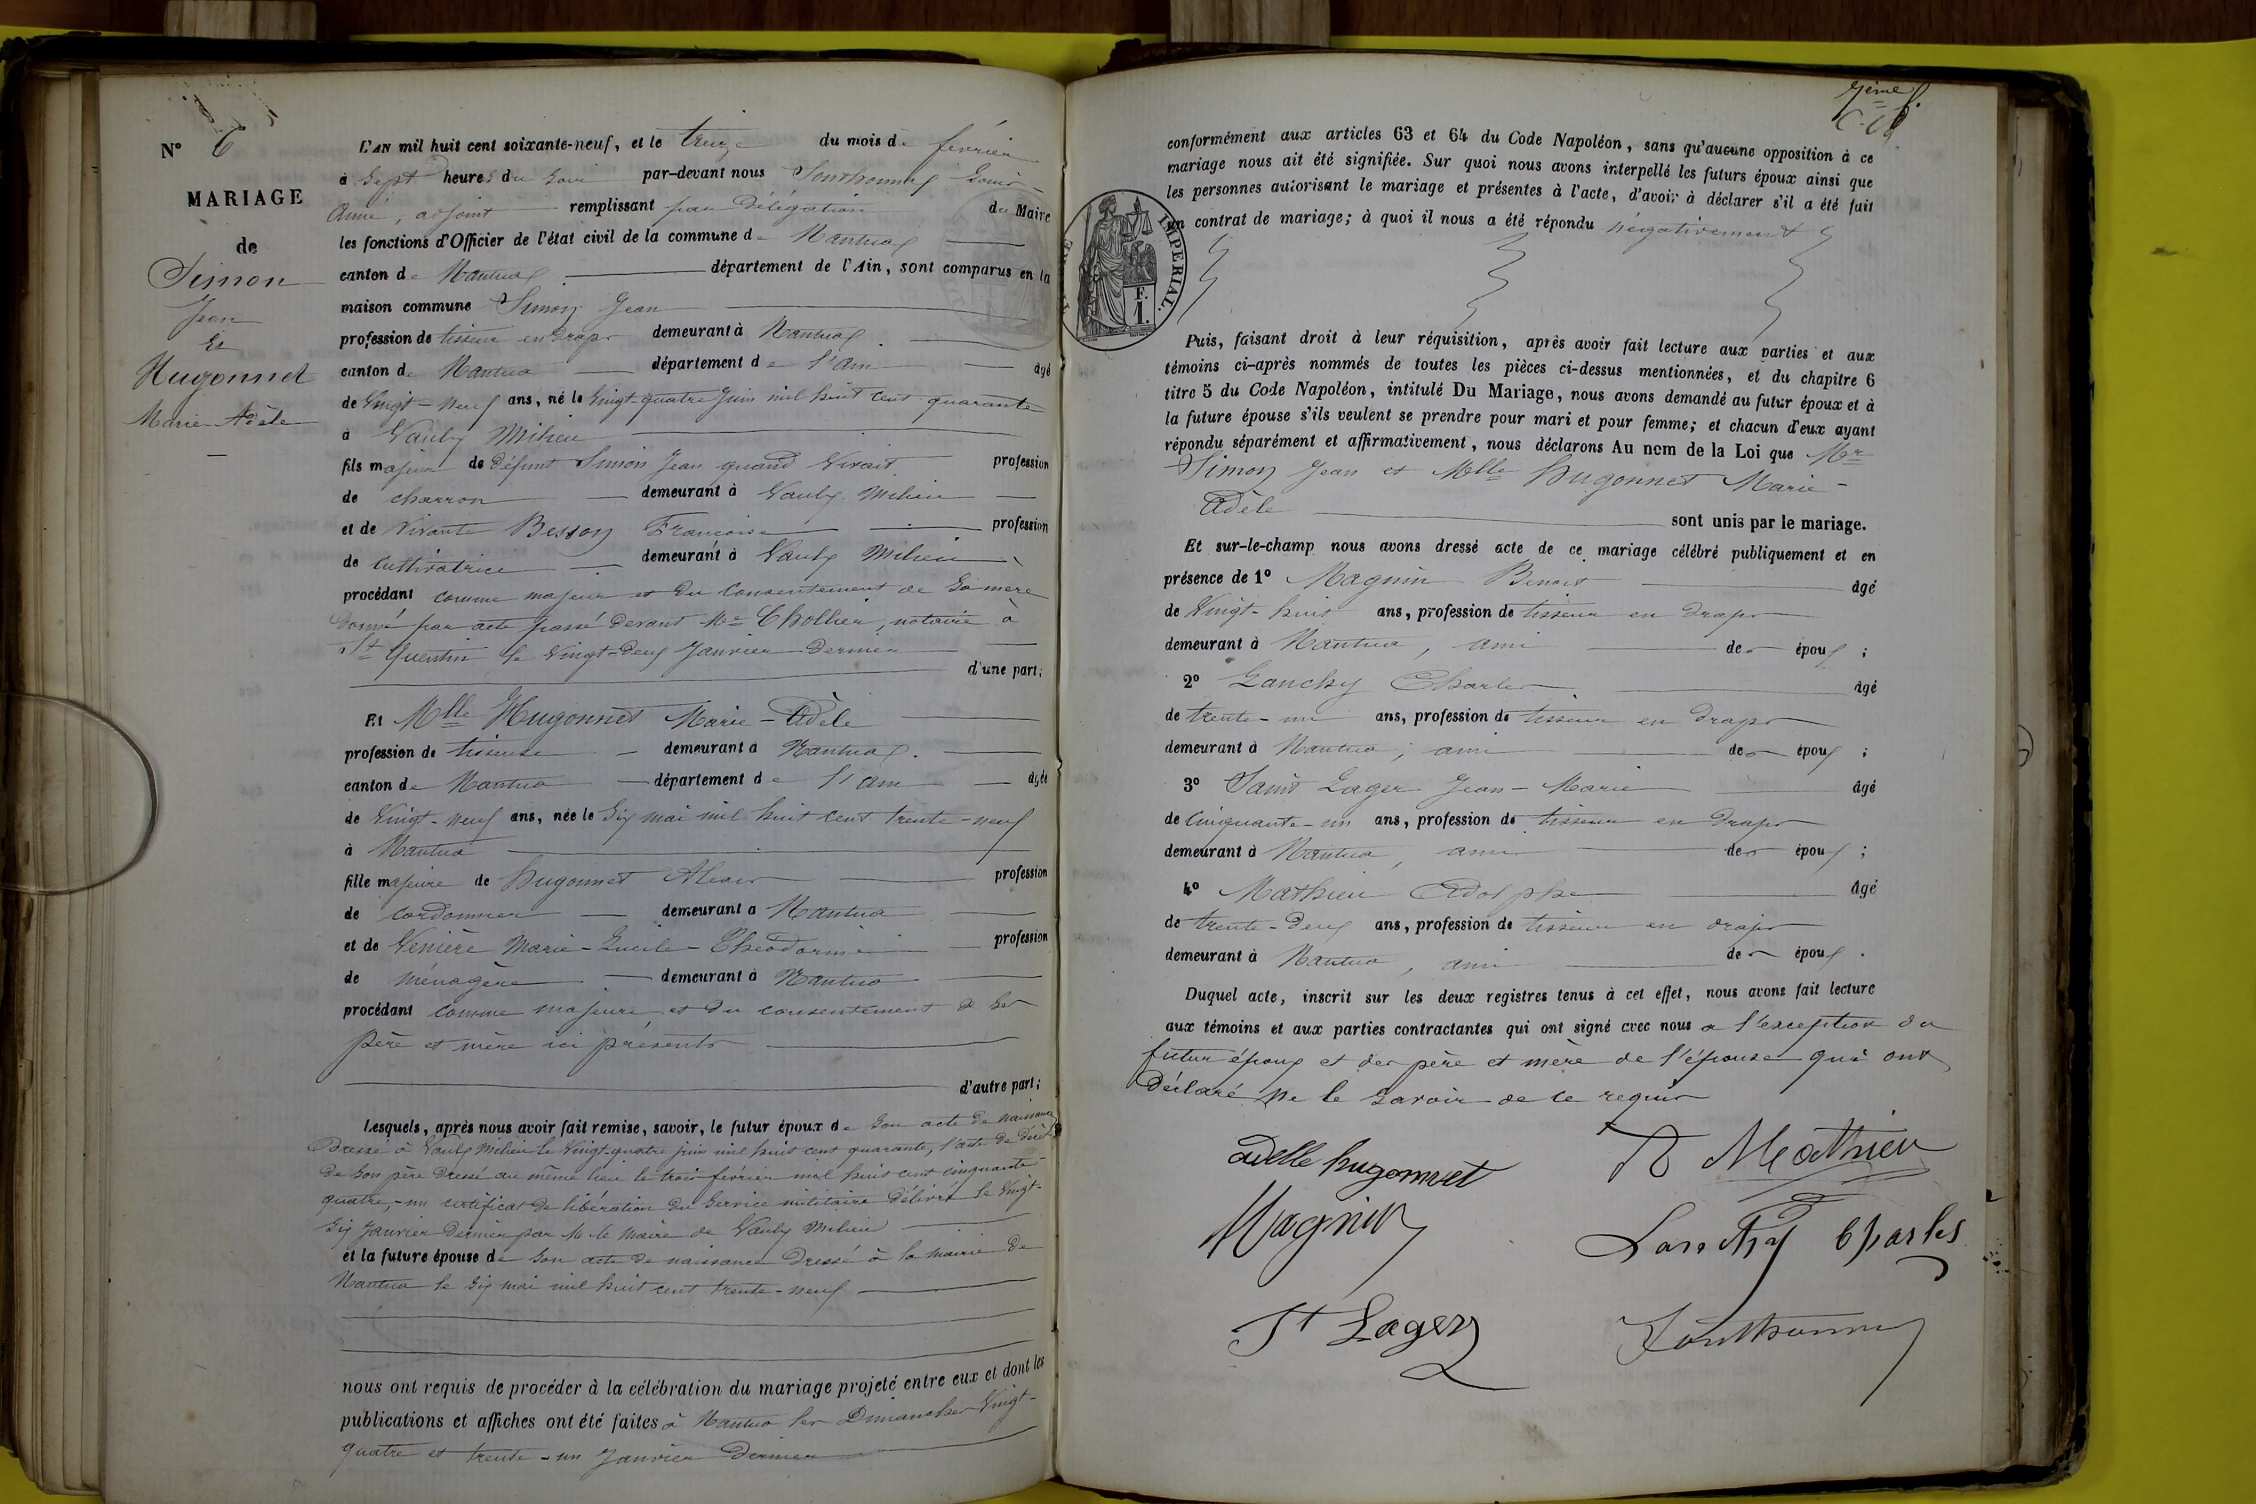 N° 6
MARIAGE
de
Simon
Jean
Et
Hugonnet
Marie-Adèle
L'AN mil huit cent soixante-neuf, et le treize du mois de février
à Sept heures du Soir par-devant nous Louis-
Aimé, adjoint remplissant par Délégation du Maire
les fonctions d'Officier de l'état civil de la commune de Nantua
canton de Nantua département de l'Ain, sont comparus en la
maison commune Simon Jean
profession de tisseur en Draps demeurant à Nantua
canton de Nantua département de l'Ain âgé
de Vingt-Neuf ans, né le Vingt-quatre Juin mil huit cent quarante
à Vaulx Milieu
fils majeur de Défunt Simon Jean quand Vivait profession
de charron demeurant à Vaulx Milieu
et de Vivante Besson Françoise profession
de Cultivatrice demeurant à Vaulx Milieu
procédant comme majeur et du Consentement de Sa mère
Donné par acte passé Devant Me Chollier, notaire à
St Quentin le Vingt-Deux Janvier Dernier
d'une part;
Et Mlle Hugonnet Marie-Adèle
profession de tisseuse demeurant à Nantua
canton de Nantua département de l'Ain âgée
de Vingt-neuf ans, née le Six mai mil huit cent trente-neuf
à Nantua
fille majeure de Hugonnet Alexis profession
de Cordonnier demeurant à Nantua
et de Venière Marie-Lucile-Théodorine profession
de ménagère demeurant à Nantua
procédant comme majeure et du consentement de Ses
Père et mère ici présents
d'autre part;
Lesquels, après nous avoir fait remise, savoir, le futur époux de Son acte de naissance
Dressé à Vaulx Milieu le Vingt quatre juin mil huit cent quarante, l'acte de Décès
De Son père Dressé au même lieu le trois février mil huit cent cinquante
quatre,-un certificat De libération du Service militaire Délivré le Vingt-
Six Janvier Dernier par M. le Maire de Vaulx Milieu
et la future épouse de Son acte de naissance Dressé à la mairie De
Nantua le Six mai mil huit cent trente-neuf
nous ont requis de procéder à la célébration du mariage projeté entre eux et dont les
publications et affiches ont été faites à Nantua les Dimanches Vingt-
quatre et trente-un Janvier Dernier
7ème f.
IMPERIAL.
F.
1.
conformément aux articles 63 et 64 du Code Napoléon, sans qu'aucune opposition à ce
mariage nous ait été signifiée. Sur quoi nous avons interpellé les futurs époux ainsi que
les personnes autorisant le mariage et présentes à l'acte, d'avoir à déclarer s'il a été fait
un contrat de mariage; à quoi il nous a été répondu négativement
Puis, faisant droit à leur réquisition, après avoir fait lecture aux parties et aux
témoins ci-après nommés de toutes les pièces ci-dessus mentionnées, et du chapitre 6
titre 5 du Code Napoléon, intitulé Du Mariage, nous avons demandé au futur époux et à
la future épouse s'ils veulent se prendre pour mari et pour femme; et chacun d'eux ayant
répondu séparément et affirmativement, nous déclarons Au nom de la Loi que Mr
Simon Jean et Mlle Hugonnet Marie-
Adèle sont unis par le mariage.
Et sur-le-champ nous avons dressé acte de ce mariage célébré publiquement et en
présence de 1° Magnin Benoit âgé
de Vingt-huit ans, profession de tisseur en Draps
demeurant à Nantua, ami des époux;
2° Lanchy Charles âgé
de trente-un ans, profession de tisseur en Draps
demeurant à Nantua, ami des époux;
3° Saint Lager Jean-Marie âgé
de Cinquante-un ans, profession de tisseur en Draps
demeurant à Nantua, ami des époux;
4° Mathieu Adolphe âgé
de trente-Deux ans, profession de tisseur en draps
demeurant à Nantua, ami des époux.
Duquel acte, inscrit sur les deux registres tenus à cet effet, nous avons fait lecture
aux témoins et aux parties contractantes qui ont signé avec nous a l'exception du
futur époux et des père et mère de l'épouse qui ont
Déclaré ne le Savoir de ce requis
adelle hugonnet
A Mathieu
Magnin
Lanchy Charles
St Lager